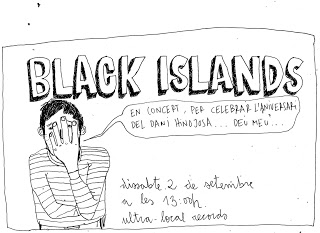 BLACK ISLANDS
EN CONCERT, PER CELEBRAR L'ANIVERSARI
DEL DANI HINOJOSA... DEU MEU...
dissabte 2 de setembre
a les 13:00h.
ultra-local records